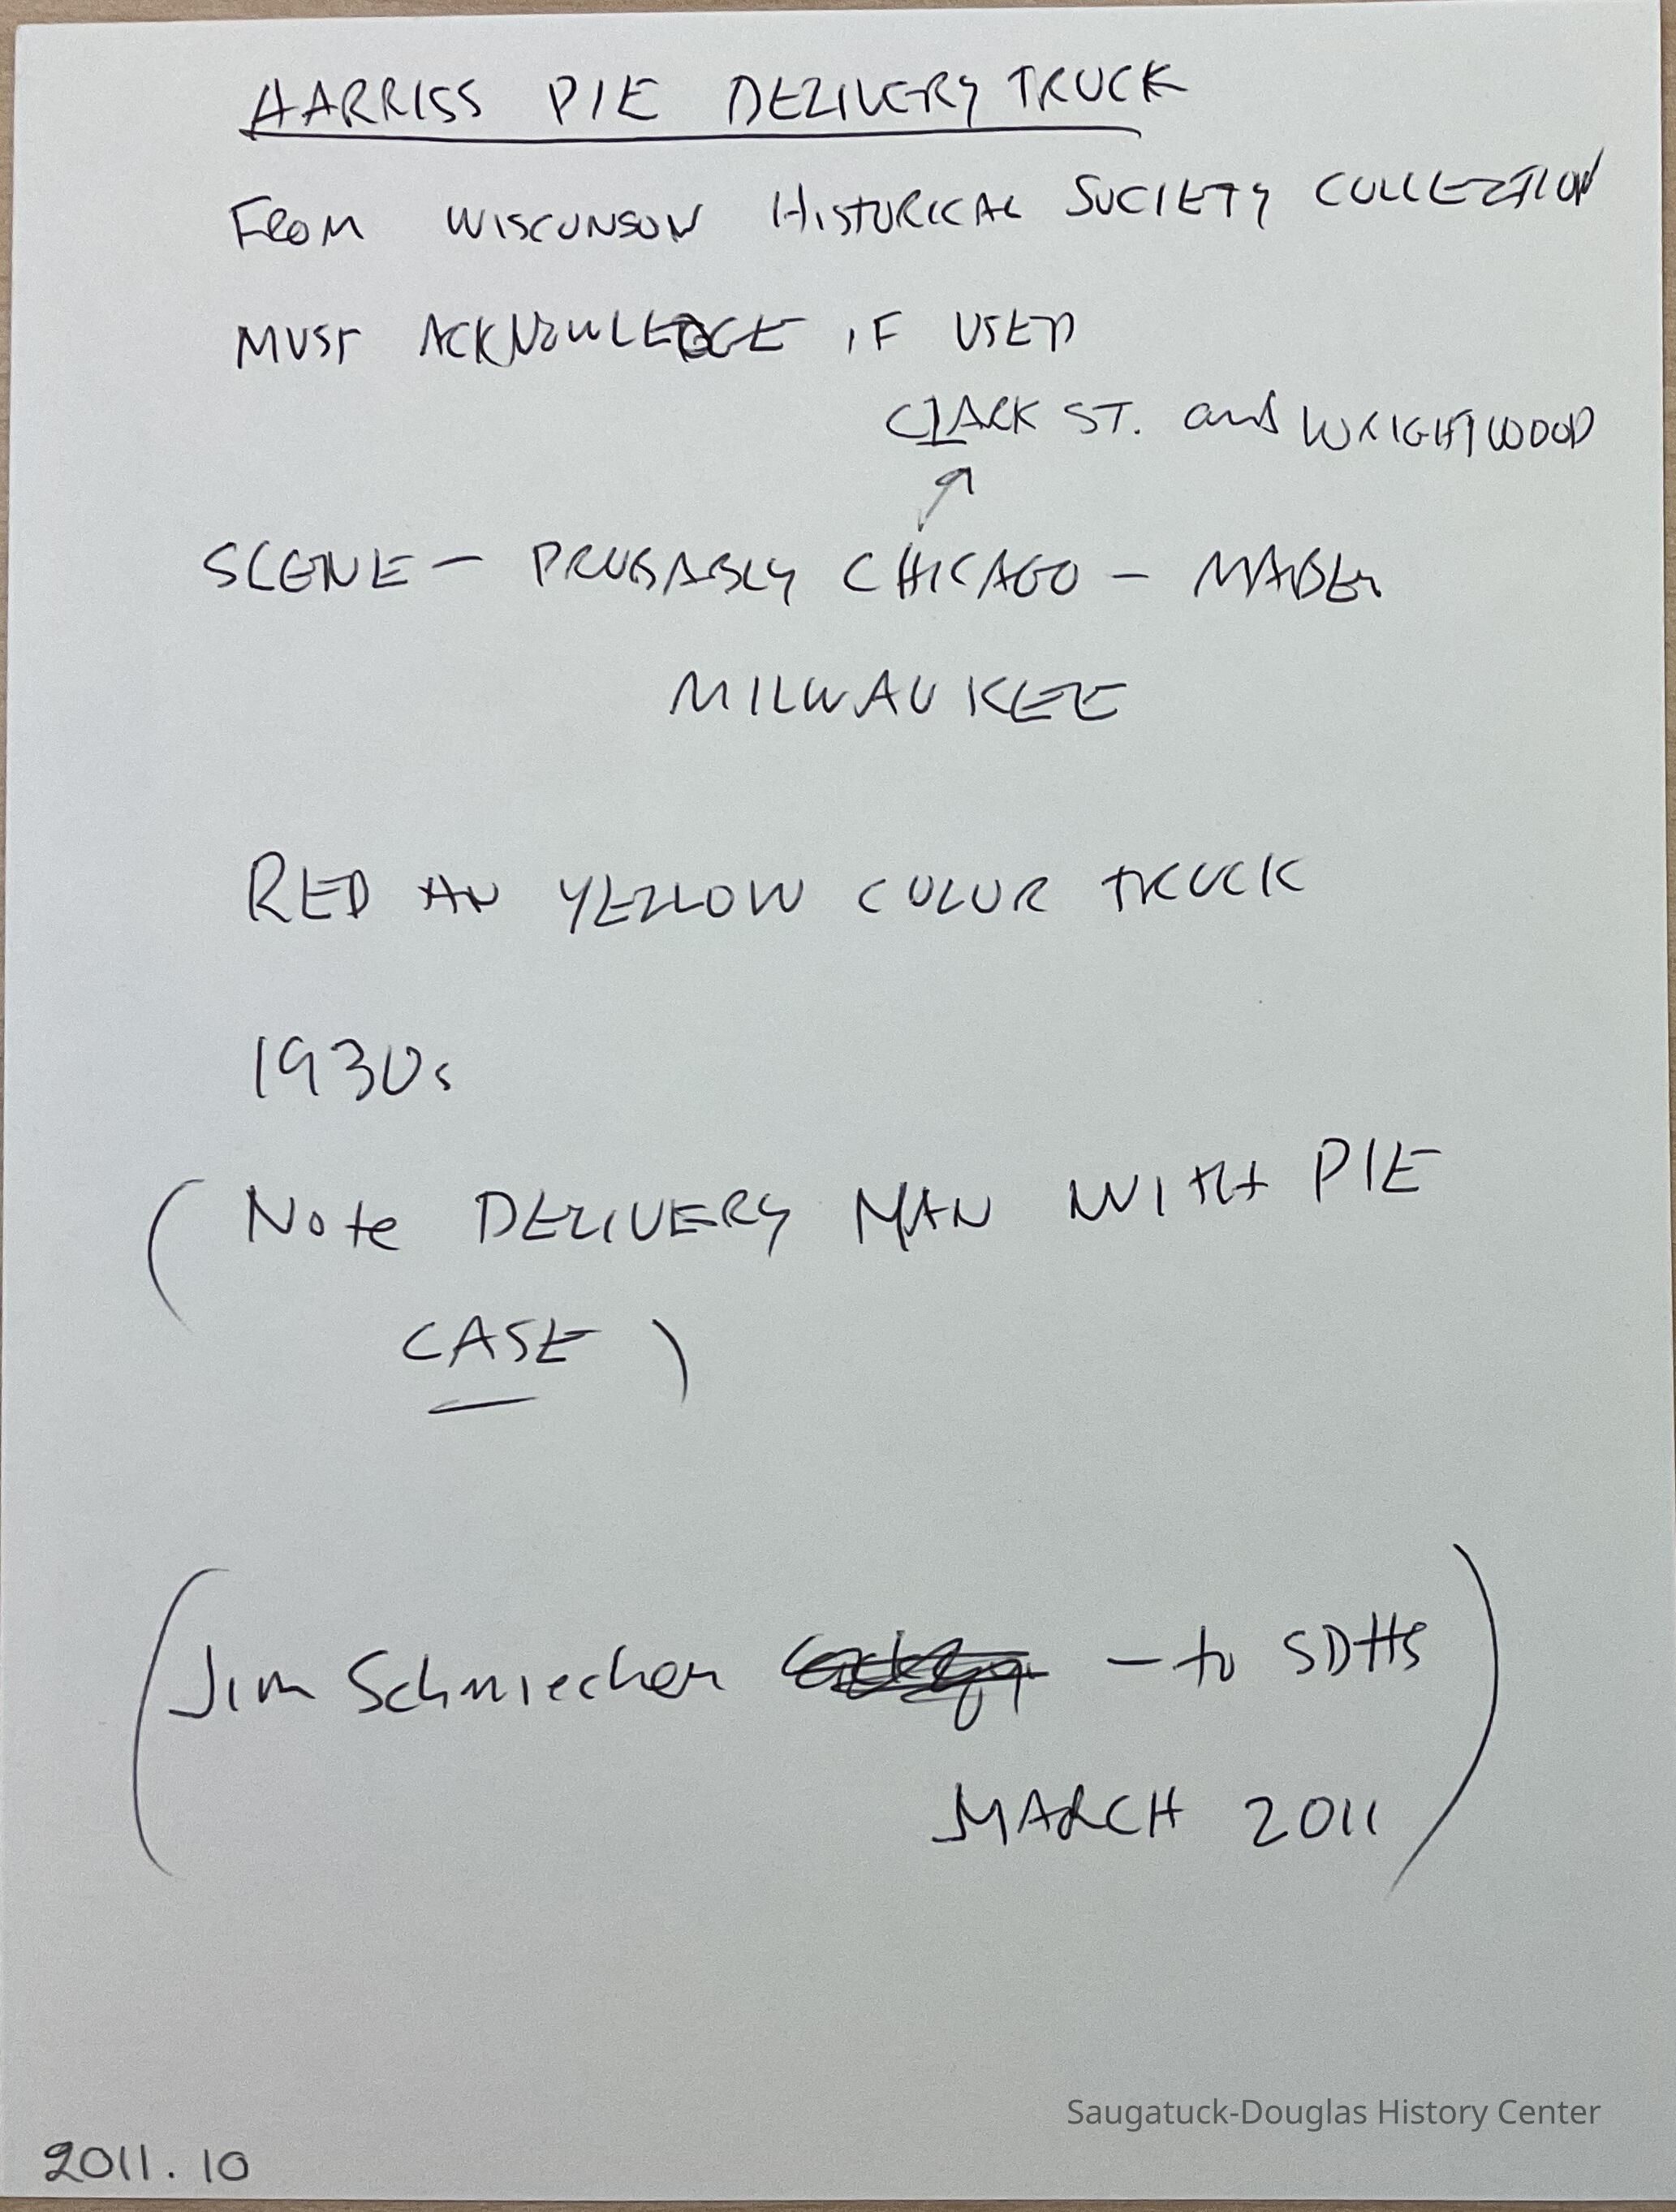 HARRISS PIE DELIVERY TRUCK
FROM WISCONSON HISTORICAL SOCIETY COLLECTION
MUST ACKNOWLEDGE IF USED
CLARK ST. and WRIGHTWOOD
SCENE - PROBABLY CHICAGO - MABEY
MILWAUKEE
RED AN YELLOW COLOR TRUCK
1930s
(Note DELIVERY MAN WITH PIE
CASE)
(Jim Schmiechen - to SDHS
MARCH 2011)
Saugatuck-Douglas History Center
2011.10